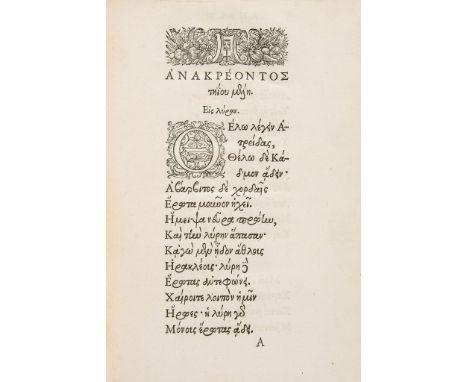 ΑΝΑΚΡΕΟΝΤΟΣ
τηΐου μέλη.
Εἰς λύραν.
Θέλω λέγειν Ἀ-
τρείδας,
Θέλω δὲ Κά-
δμον ᾄδειν·
Ἁ βάρβιτος δὲ χορδαῖς
Ἔρωτα μοῦνον ἠχεῖ.
Ἤμειψα νεῦρα πρώην,
Καὶ τὴν λύρην ἅπασαν·
Κἀγὼ μὲν ᾖδον ἄθλους
Ἡρακλέους· λύρη δὲ
Ἔρωτας ἀντεφώνει.
Χαίροιτε λοιπὸν ἡμῖν
Ἥρωες· ἡ λύρη γὰρ
Μόνους ἔρωτας ᾄδει.
A